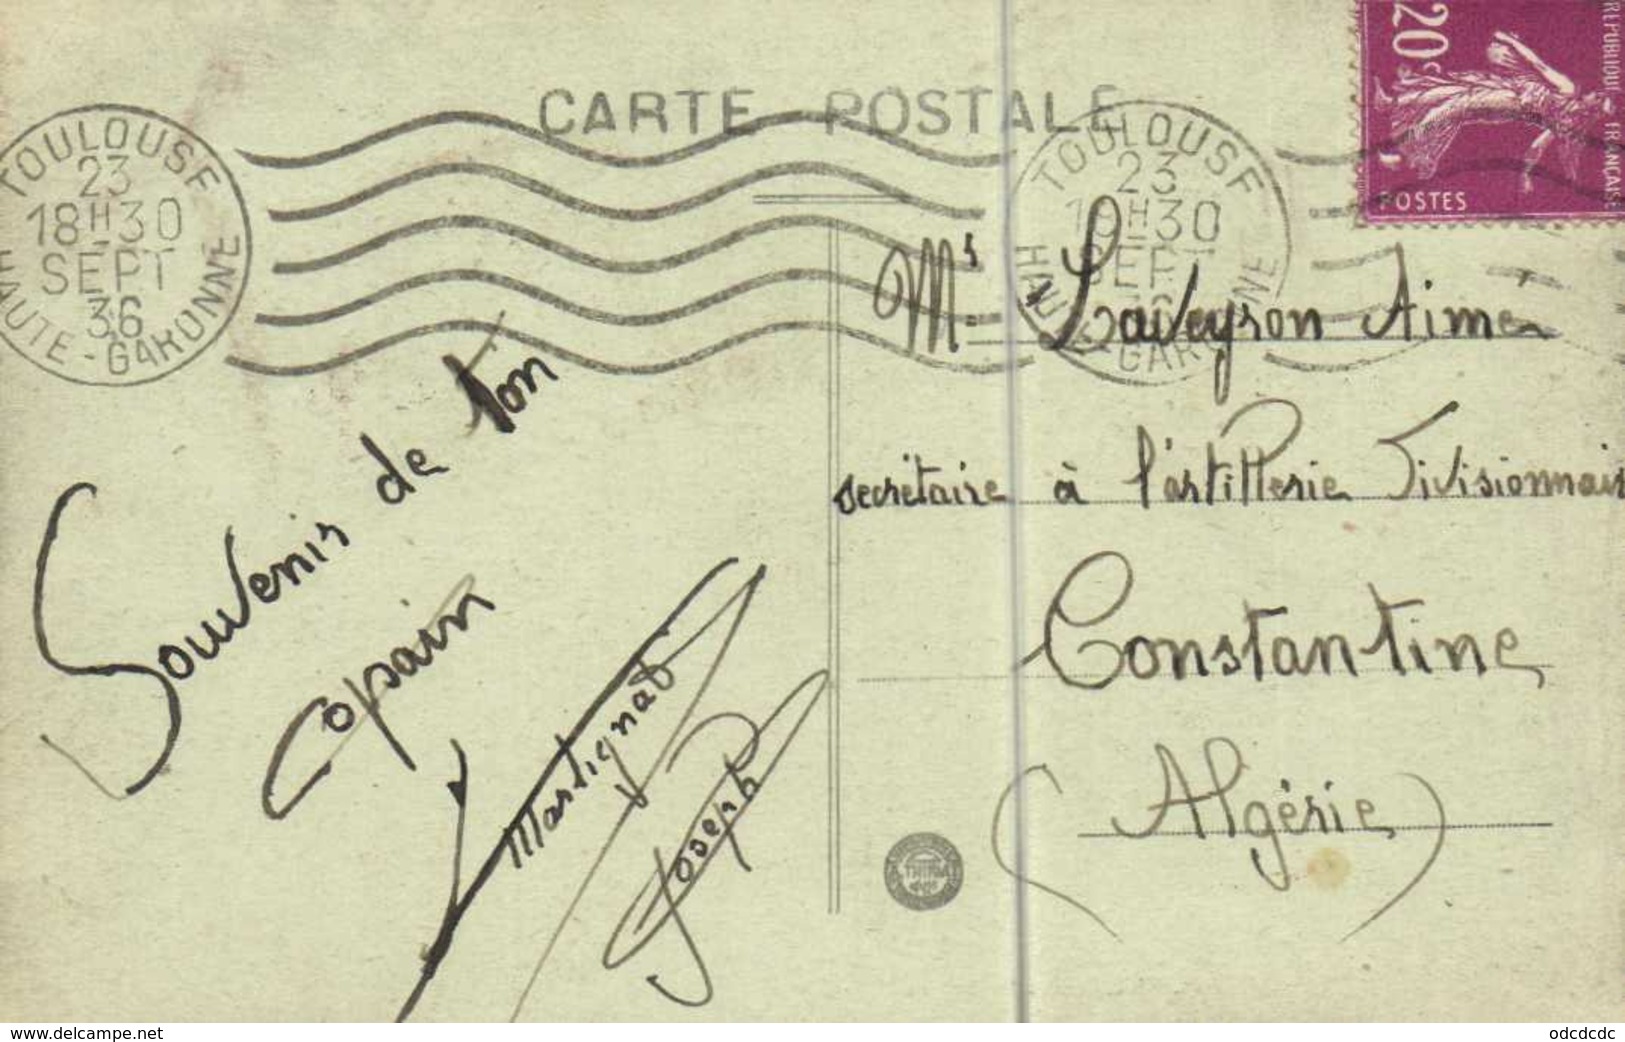 CARTE POSTALE
TOULOUSE
23
18H30
SEPT
36
HAUTE-GARONNE
TOULOUSE
23
18H30
SEPT
36
HAUTE-GARONNE
20c
REPUBLIQUE FRANÇAISE
POSTES
Souvenir de ton
copain
Martignat
Joseph
Mr. Laveyron Aimé
secrétaire à l'artillerie Divisionnair
Constantine
(Algérie)
www.delcampe.net
odcdcdc